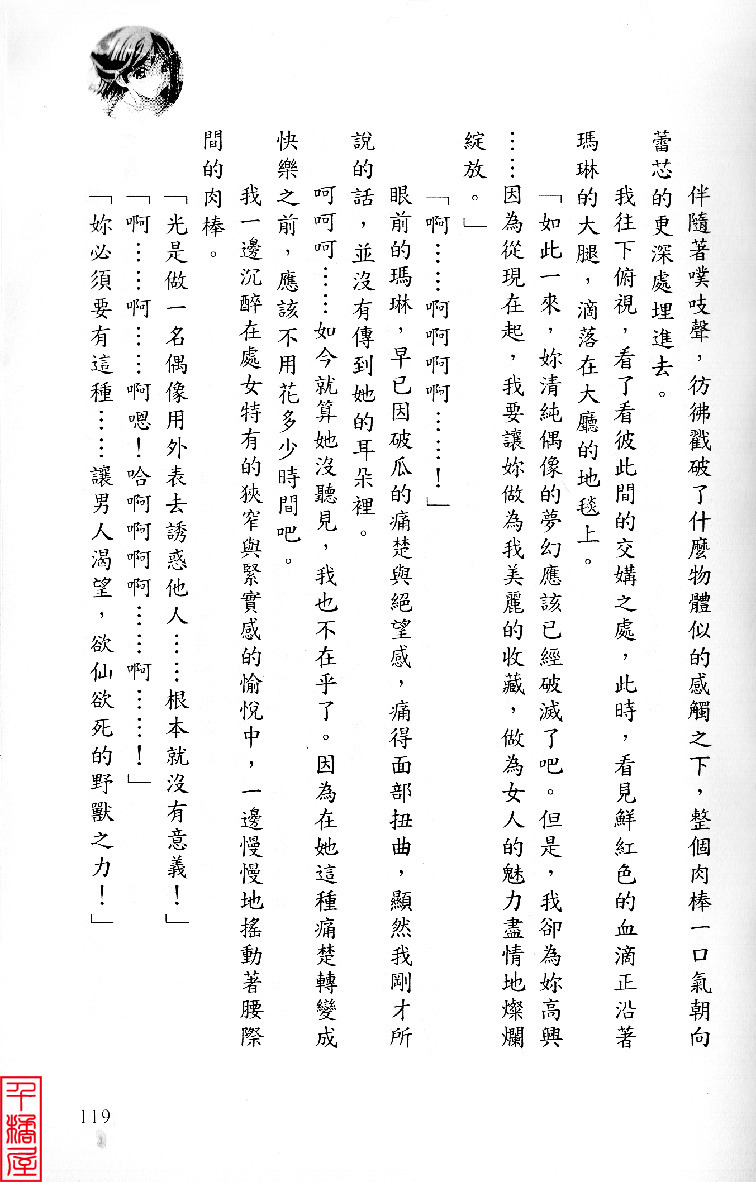 伴隨著噗吱聲，彷彿戳破了什麼物體似的感觸之下，整個肉棒一口氣朝向
蕾芯的更深處埋進去。
我往下俯視，看了看彼此間的交媾之處，此時，看見鮮紅色的血滴正沿著
瑪琳的大腿，滴落在大廳的地毯上。
「如此一來，妳清純偶像的夢幻應該已經破滅了吧。但是，我卻為妳高興
……因為從現在起，我要讓妳做為我美麗的收藏，做為女人的魅力盡情地燦爛
綻放。」
「啊……啊啊啊……！」
眼前的瑪琳，早已因破瓜的痛楚與絕望感，痛得面部扭曲，顯然我剛才所
說的話，並沒有傳到她的耳朵裡。
呵呵呵……如今就算她沒聽見，我也不在乎了。因為在她這種痛楚轉變成
快樂之前，應該不用花多少時間吧。
我一邊沉醉在處女特有的狹窄與緊實感的愉悅中，一邊慢慢地搖動著腰際
間的肉棒。
「光是做一名偶像用外表去誘惑他人……根本就沒有意義！」
「啊……啊……啊嗯！哈啊啊啊……啊……！」
「妳必須要有這種……讓男人渴望，欲仙欲死的野獸之力！」
119